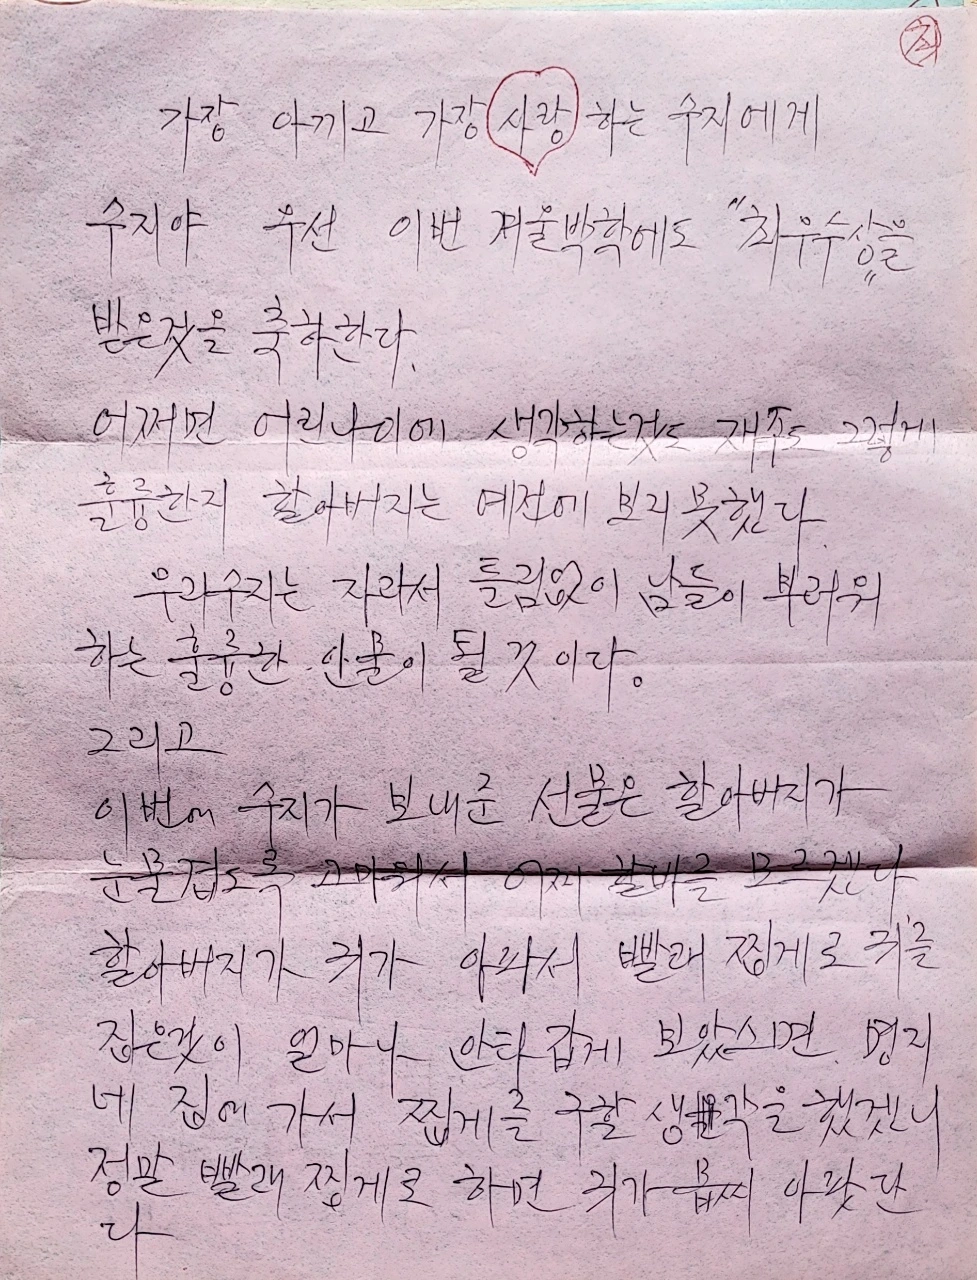 가장 아끼고 가장 사랑하는 수지에게
수지야 우선 이번 겨울방학에도 "최우수상을"
받은것을 축하한다.
어쩌면 어린나이에 생각하는것도 재주도 그렇게
훌륭한지 할아버지는 예전에 보지 못했다.
우리수지는 자라서 틀림없이 남들이 부러워
하는 훌륭한 인물이 될 것이다.
그리고
이번에 수지가 보내준 선물은 할아버지가
눈물겹도록 고마워서 어찌 할바를 모르겠다
할아버지가 귀가 아파서 빨래 찝게로 귀를
집은것이 얼마나 안타갑게 보았스면. 명지
네 집에 가서 찝게를 구할 생각을 했겠니
정말 빨래 찝게로 하면 귀가 몹씨 아팟단
다